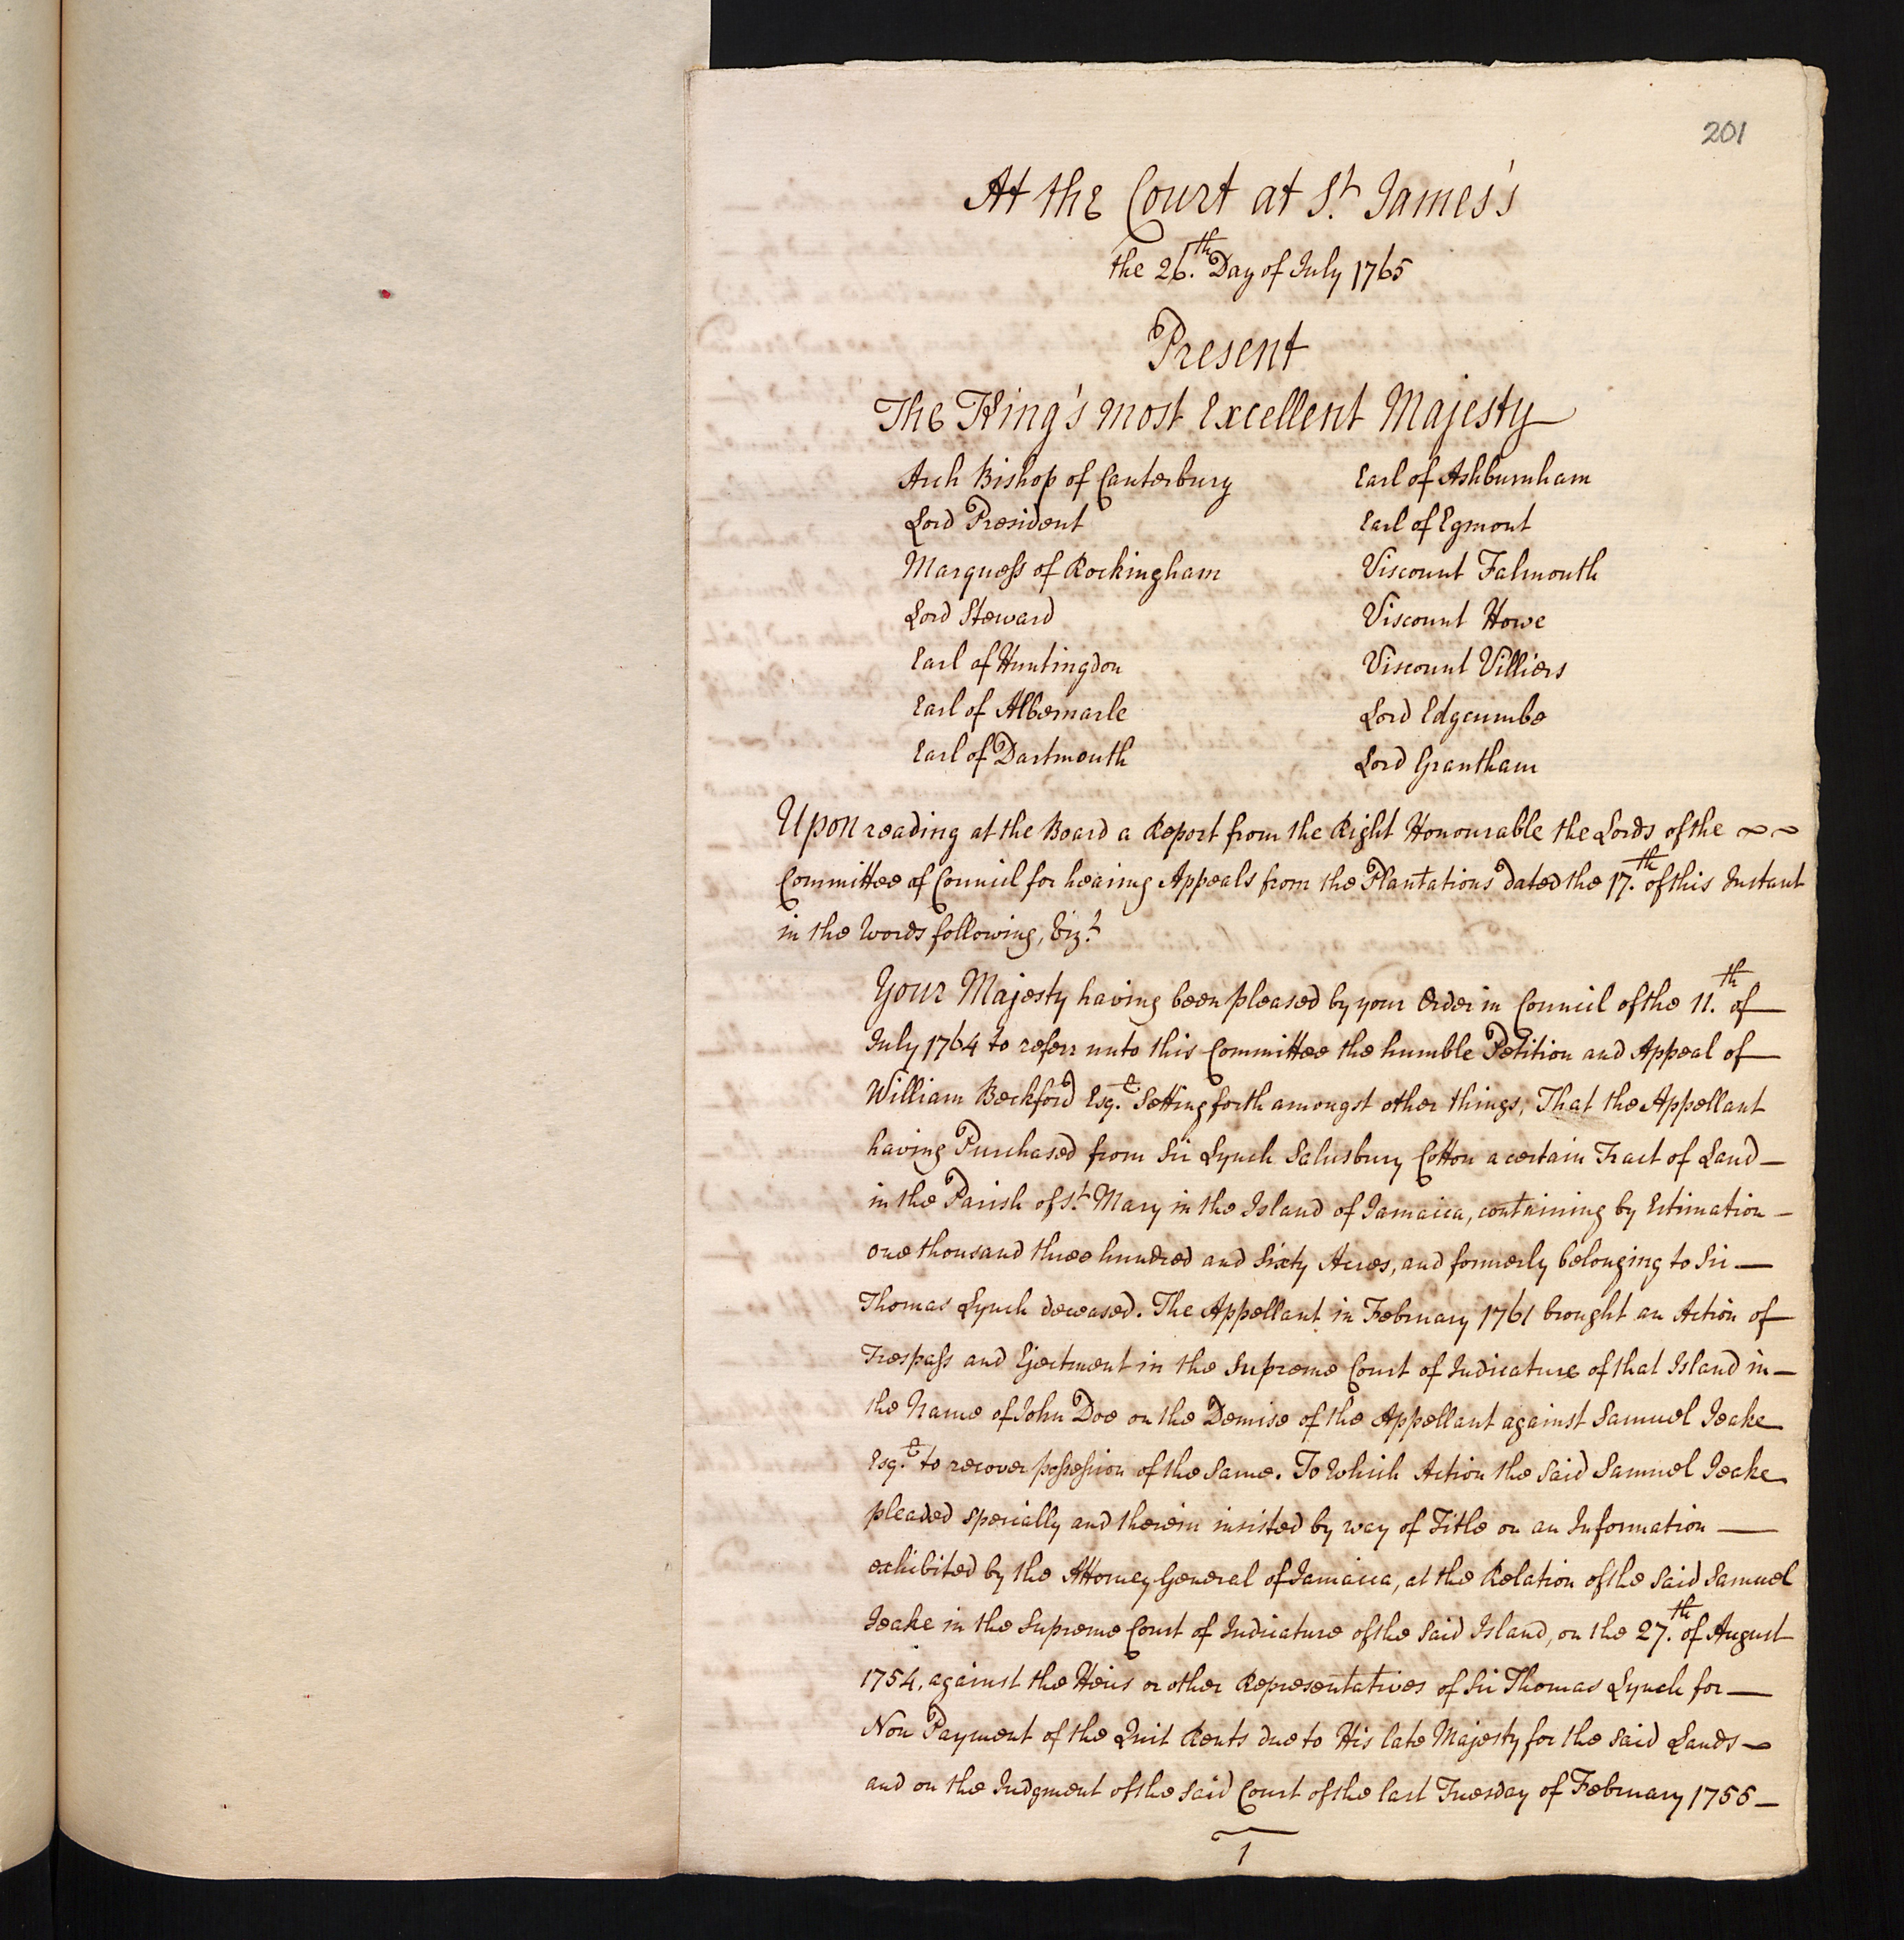 201
At the Court at St. James's
the 26.th Day of July 1765
Present
The King's most Excellent Majesty
Arch Bishop of Canterbury Earl of Ashburnham
Lord President Earl of Egmont
Marquess of Rockingham Viscount Falmouth
Lord Steward Viscount Howe
Earl of Huntingdon Viscount Villiers
Earl of Albemarle Lord Edgcumbe
Earl of Dartmouth Lord Grantham
Upon reading at the Board a Report from the Right Honourable the Lords of the
Committee of Council for hearing Appeals from the Plantations dated the 17.th of this Instant
in the words following, Vizt.
Your Majesty having been pleased by your Order in Council of the 11.th of
July 1764 to referr unto this Committee the humble Petition and Appeal of
William Beckford Esq.e Setting forth amongst other things, That the Appellant
having Purchased from Sir Lynch Salusbury Cotton a certain Tract of Land
in the Parish of St. Mary in the Island of Jamaica, containing by Estimation
one thousand three hundred and Sixty Acres, and formerly belonging to Sir
Thomas Lynch deceased. The Appellant in February 1761 brought an Action of
Trespass and Ejectment in the Supreme Court of Judicature of that Island in
the Name of John Doe on the Demise of the Appellant against Samuel Jeake
Esq.e to recover possession of the Same. To Which Action the said Samuel Jeake
pleaded Specially and therein insisted by way of Title on an Information
exhibited by the Attorney General of Jamaica, at the Relation of the said Samuel
Jeake in the Supreme Court of Judicature of the said Island, on the 27.th of August
1754, against the Heirs or other Representatives of Sir Thomas Lynch for
Non Payment of the Quit Rents due to His late Majesty for the said Lands
and on the Judgment of the said Court of the last Tuesday of February 1755
1